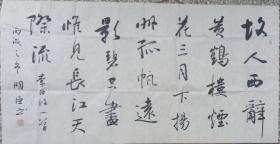 故人西辭
黄鶴樓煙
花三月下揚
州孤帆遠
影碧空盡
惟見長江天
際流 李白詩一首
丙戌之